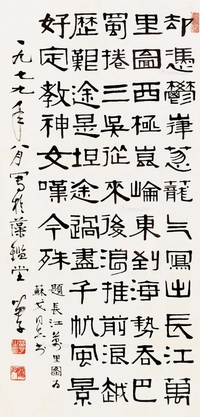 却憑鬱嵂蔥龍气寫出長江萬
里圖西極崑崙東到海勢吞巴
蜀捲三吳從來後浪推前浪越
歷艱途是坦途過盡千帆風景
好定教神女嘆今殊
題長江萬里圖为
蘇同志书
一九七九年八月寫於藻鑑堂